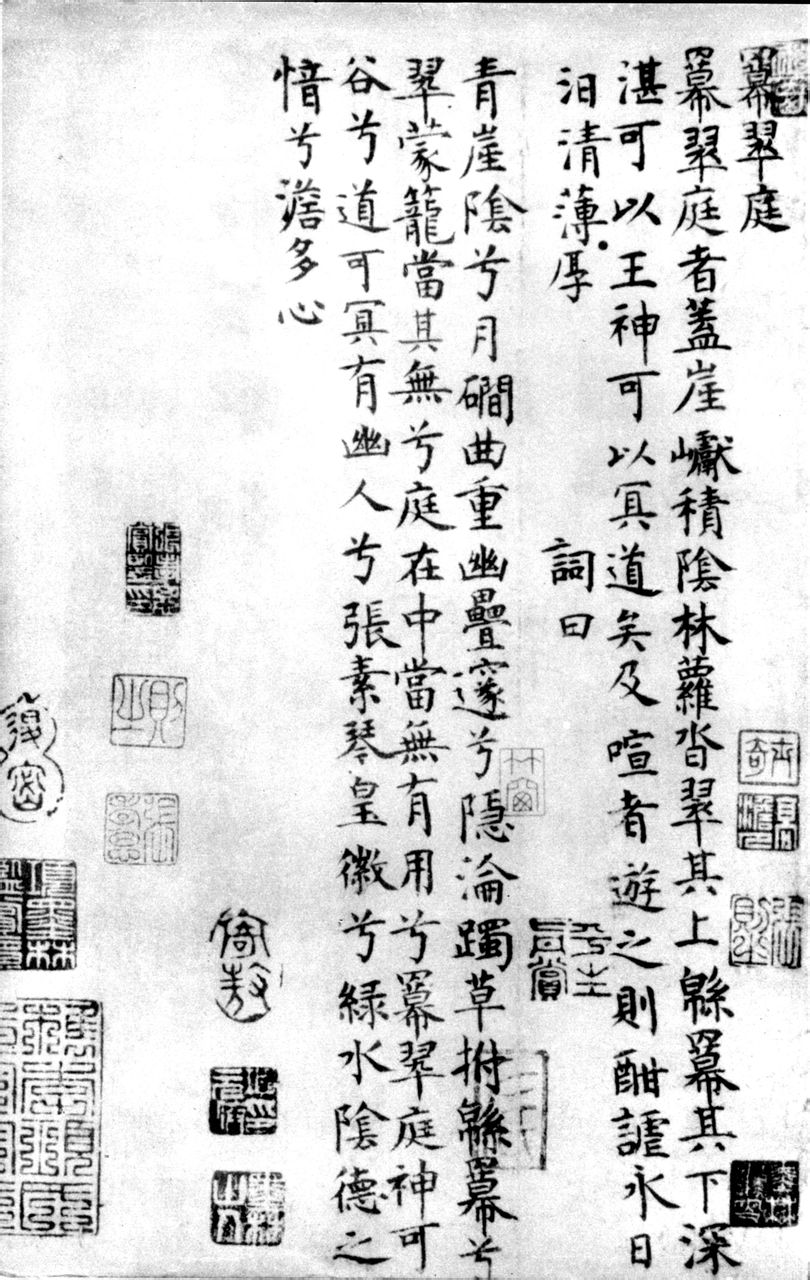 羃翠庭
羃翠庭者蓋崖巘積陰林蘿沓翠其上緜羃其下深
湛可以王神可以冥道矣及喧者遊之則酣謔永日
汨清薄厚 詞曰
青崖陰兮月磵曲重幽疊邃兮隱淪躅草拊緜羃兮
翠蒙籠當其無兮庭在中當無有用兮羃翠庭神可
谷兮道可冥有幽人兮張素琴皇徽兮綠水陰德之
愔兮澹多心